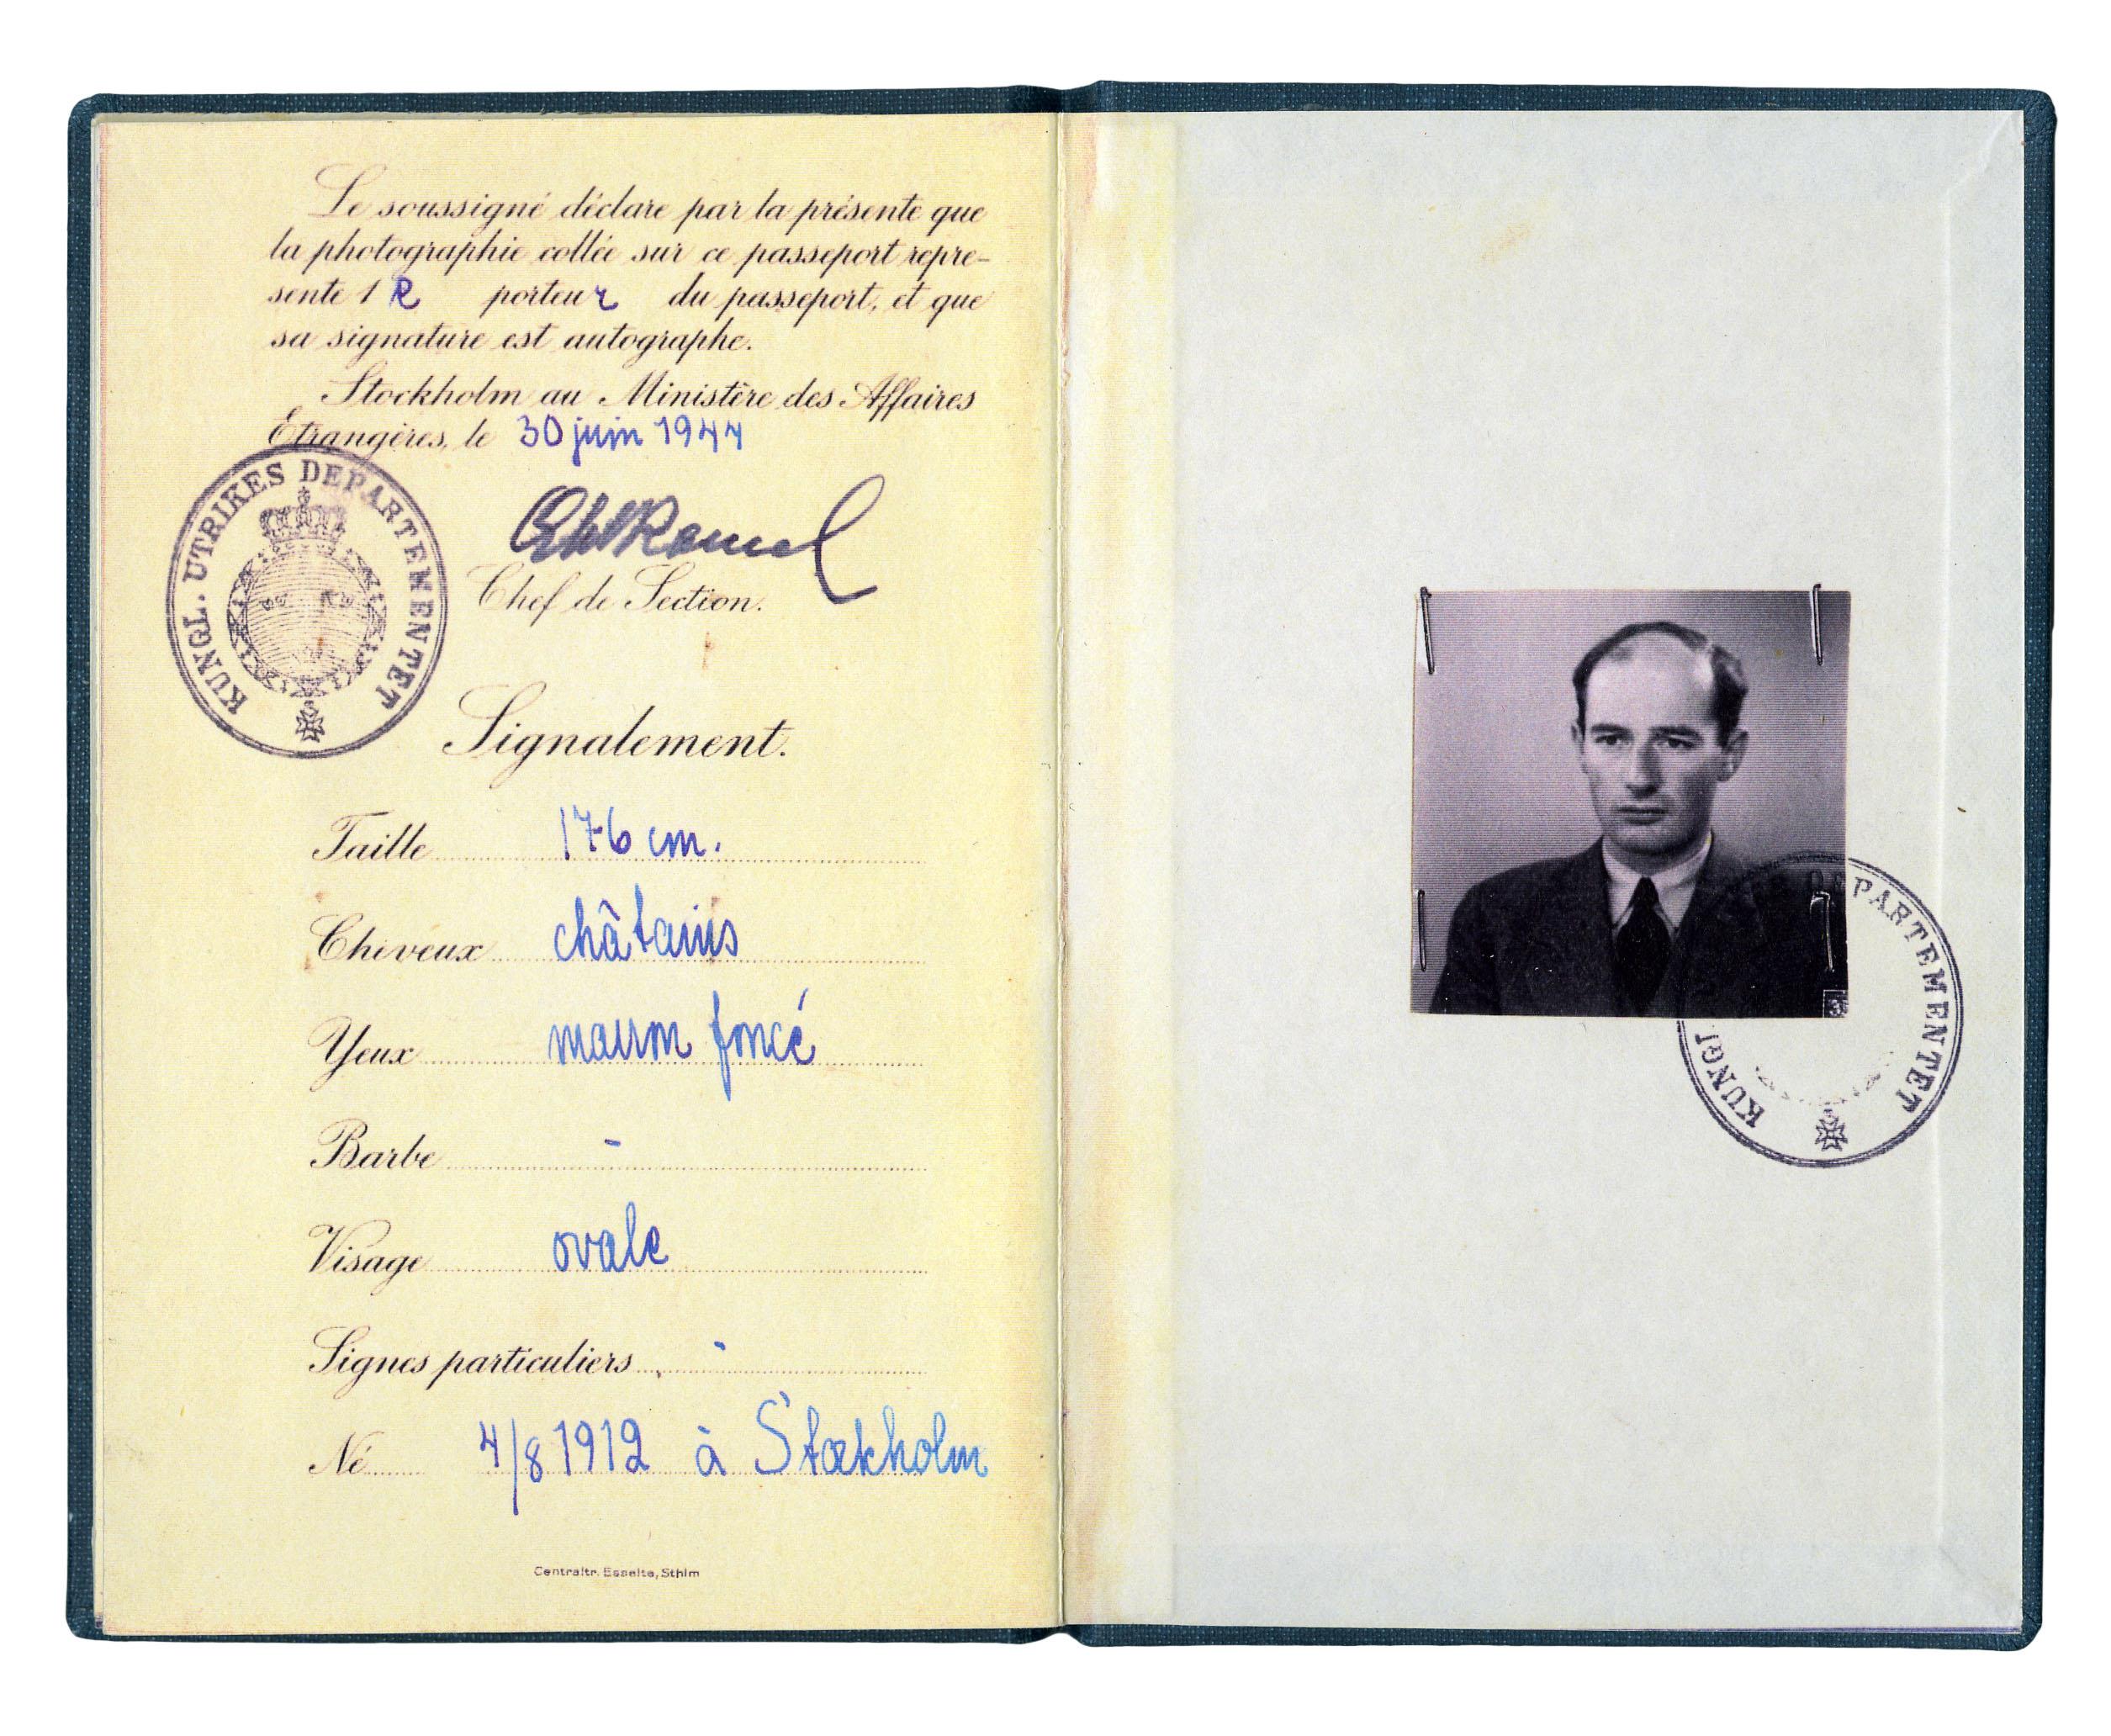 Le soussigné déclare par la présente que
la photographie collée sur ce passeport repre-
sente l e porteur du passeport, et que
sa signature est autographe.
Stockholm au Ministère des Affaires
Étrangères, le 30 juin 1944
KUNGL. UTRIKES DEPARTEMENTET
Chef de Section.
Signalement.
Taille 176 cm.
Cheveux châtains
Yeux marron foncé
Barbe -
Visage ovale
Signes particuliers -
Né 4/8 1912 à Stockholm
Centraltr. Esselte, Sthlm
KUNGL DEPARTEMENTET